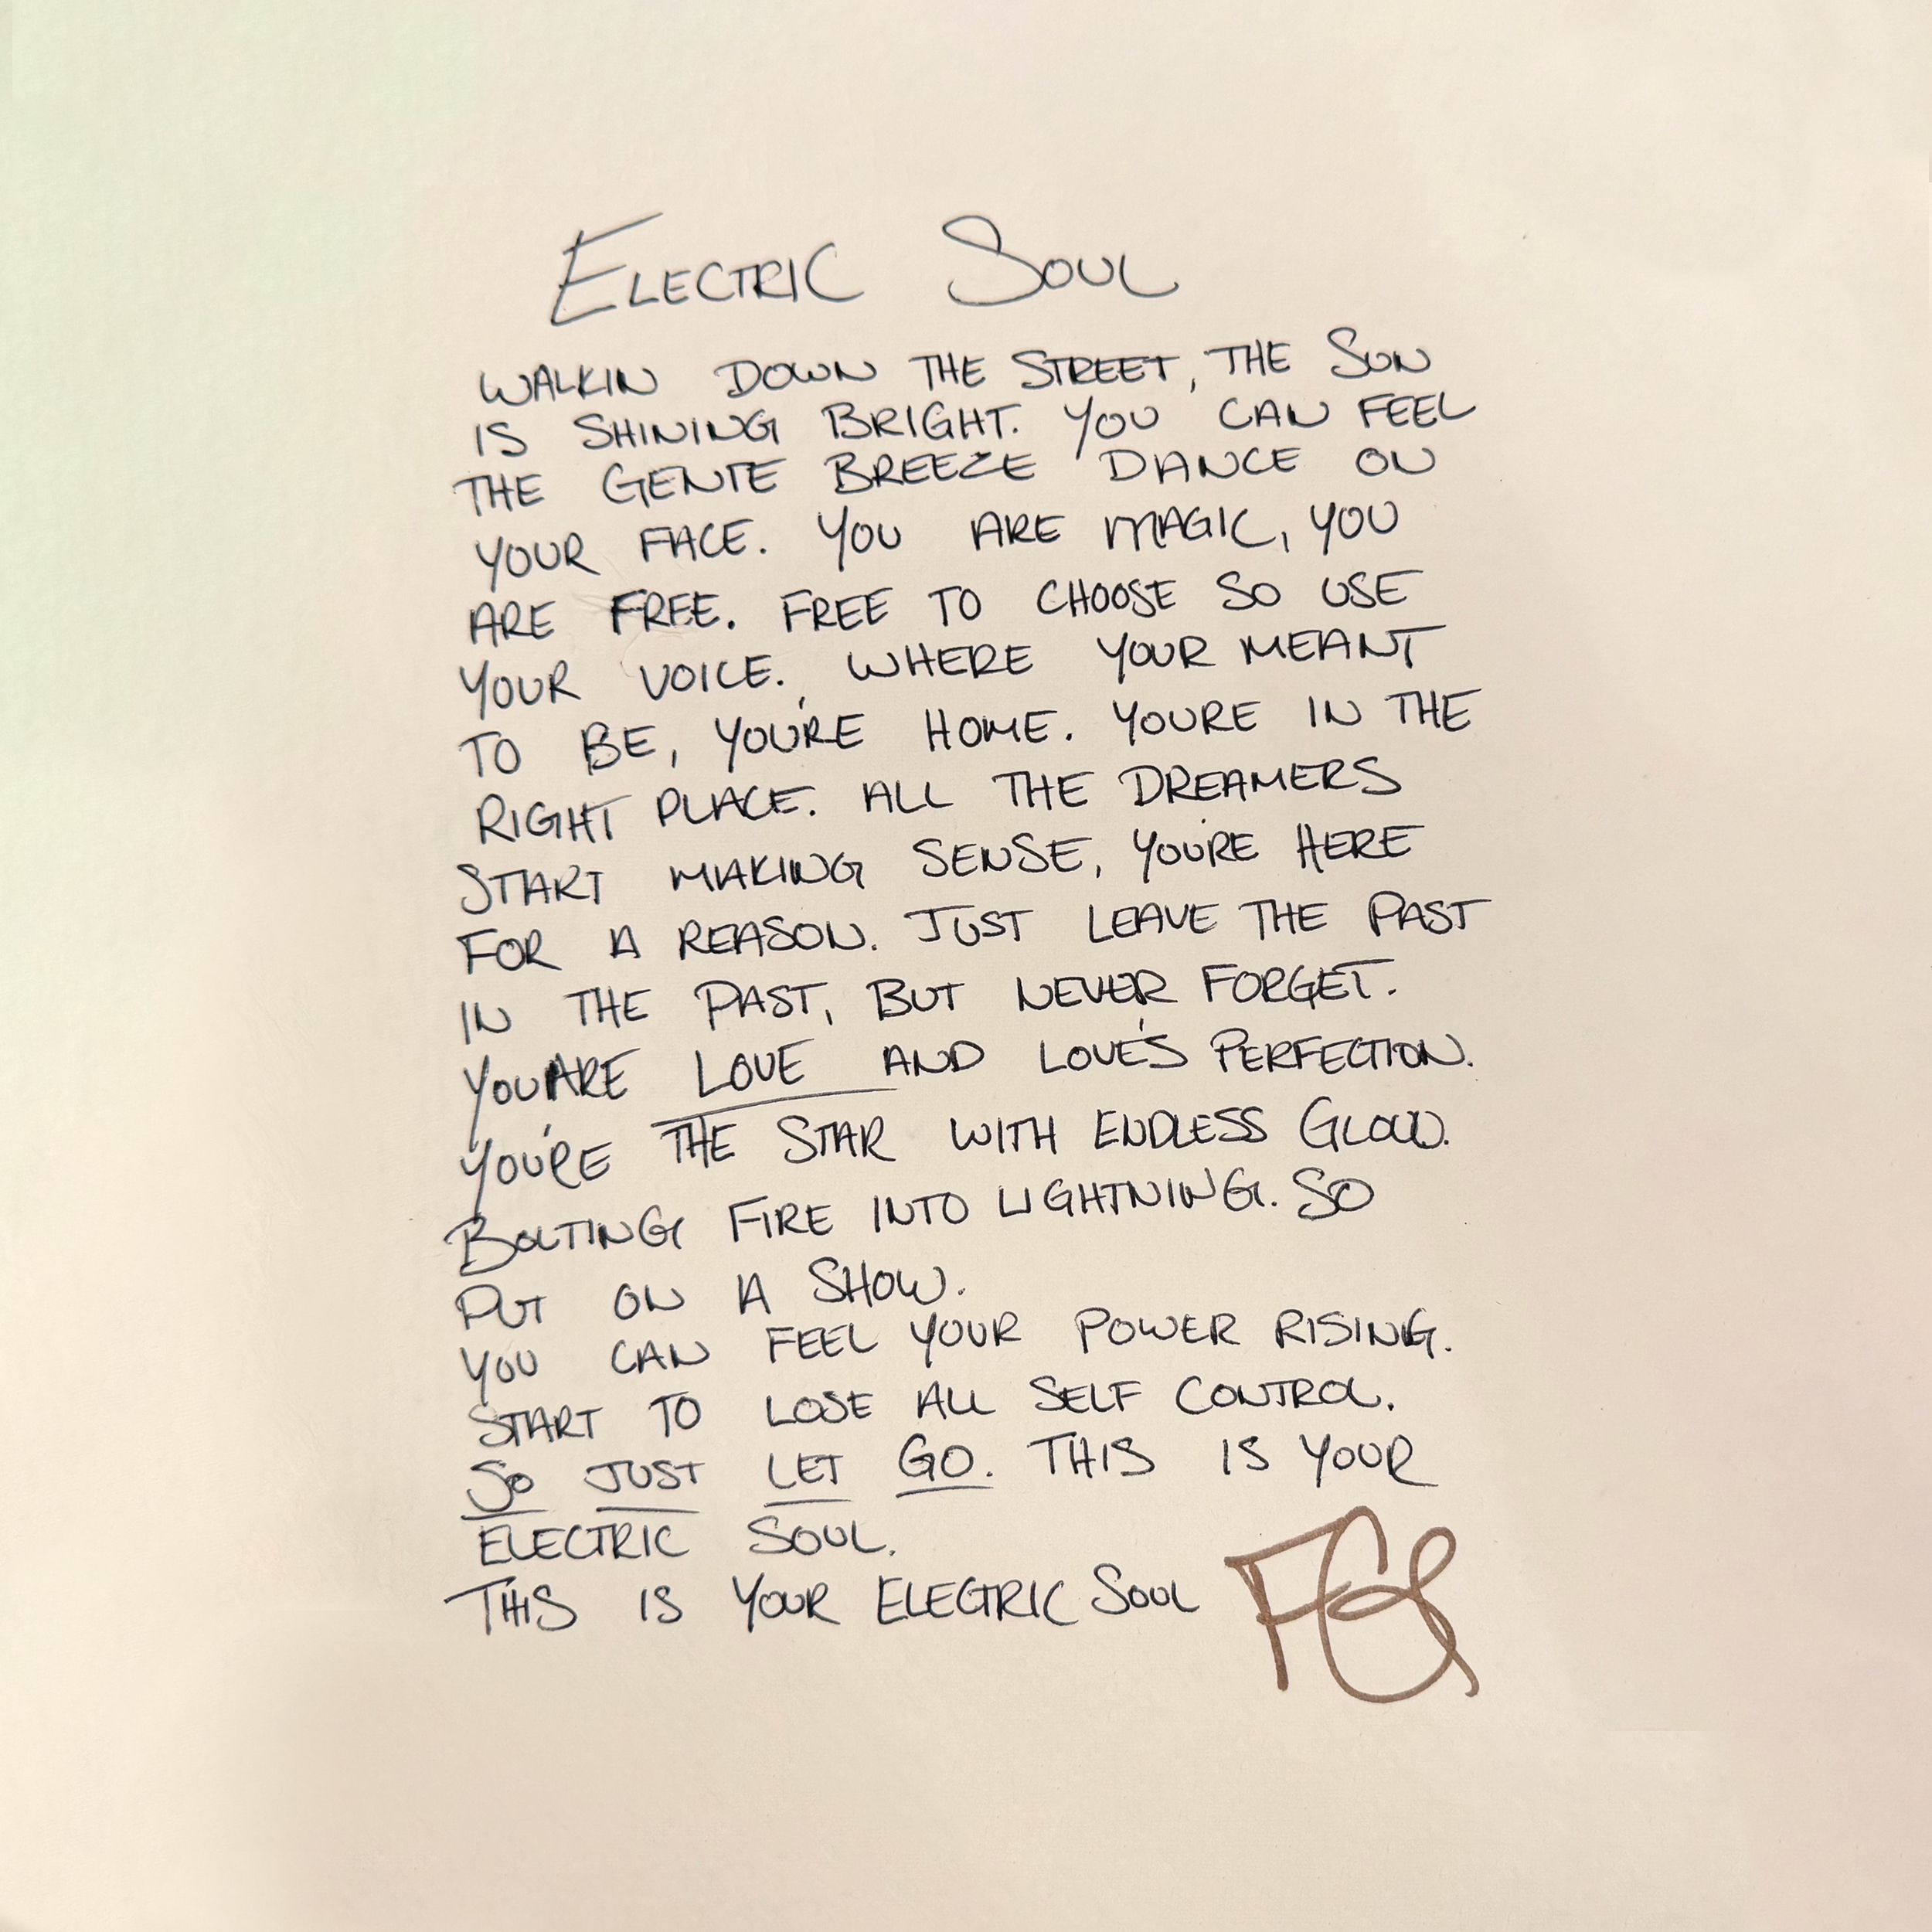 ELECTRIC SOUL
WALKIN DOWN THE STREET, THE SUN
IS SHINING BRIGHT. YOU CAN FEEL
THE GENTE BREEZE DANCE ON
YOUR FACE. YOU ARE MAGIC, YOU
ARE FREE. FREE TO CHOOSE SO USE
YOUR VOICE. WHERE YOUR MEANT
TO BE, YOU'RE HOME. YOURE IN THE
RIGHT PLACE. ALL THE DREAMERS
START MAKING SENSE, YOU'RE HERE
FOR A REASON. JUST LEAVE THE PAST
IN THE PAST, BUT NEVER FORGET.
YOU ARE LOVE AND LOVE'S PERFECTION.
YOU'RE THE STAR WITH ENDLESS GLOW.
BOLTING FIRE INTO LIGHTNING. SO
PUT ON A SHOW.
YOU CAN FEEL YOUR POWER RISING.
START TO LOSE ALL SELF CONTROL.
SO JUST LET GO. THIS IS YOUR
ELECTRIC SOUL.
THIS IS YOUR ELECTRIC SOUL